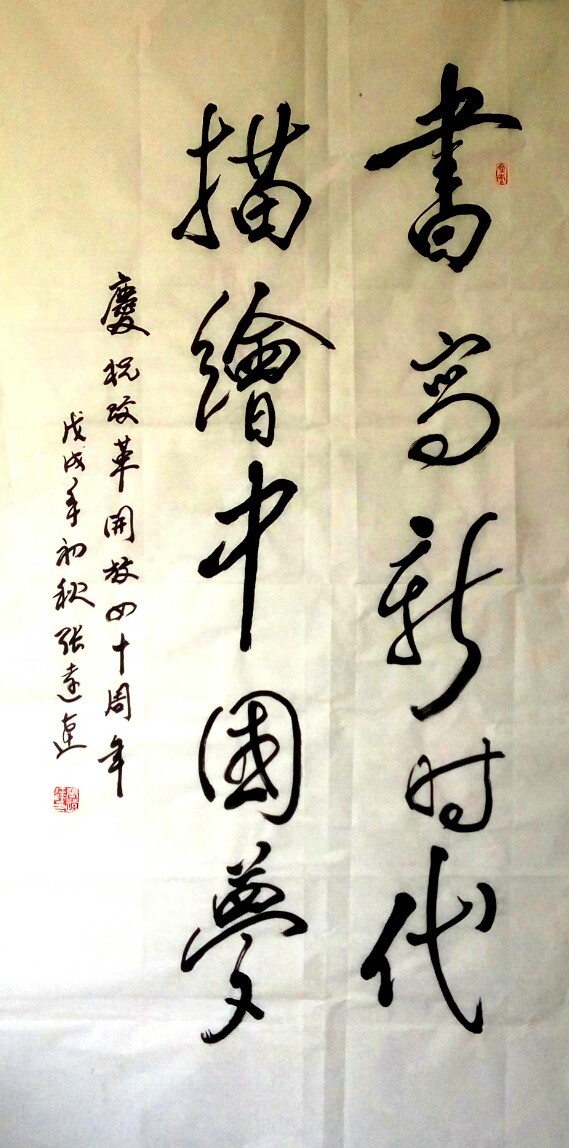 書写新时代
描繪中国夢
慶祝改革開放四十周年
戊戌年初秋张達